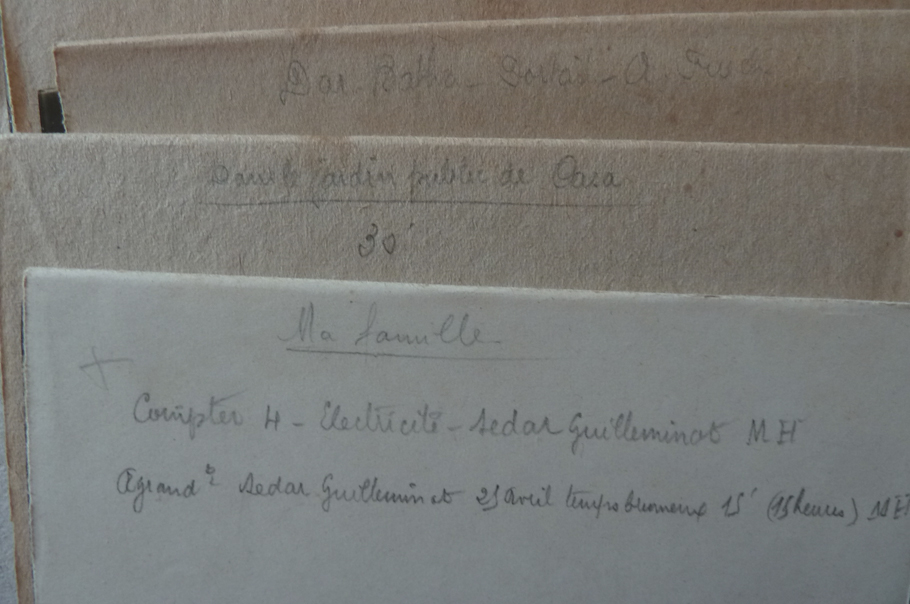 Dar
Dans le jardin public de Casa
30'
Ma famille
+
Compter 4 - Electricité - Sedar Guilleminot M H
Agrand Sedar Guilleminot 25 avril temps brumeux 15' (15 heures) M H